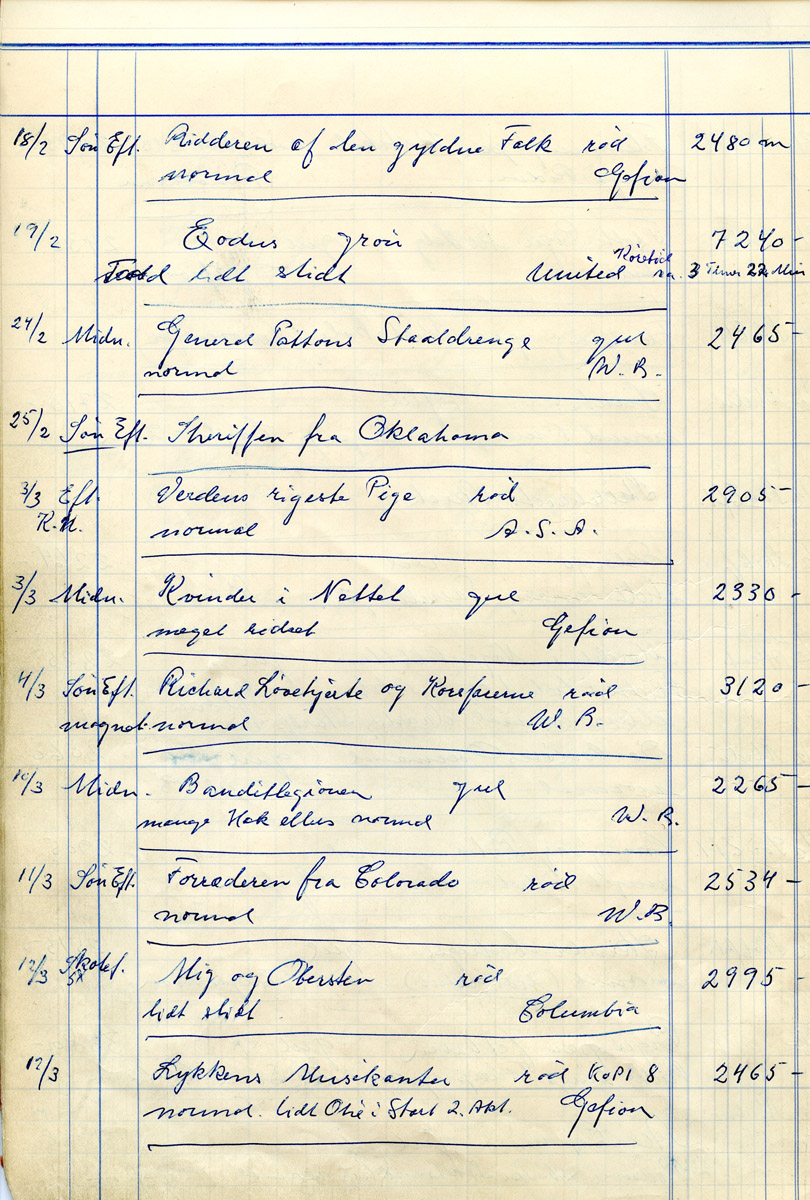 18/2 Søn Eft. Ridderen af den gyldne Falk rød 2480 m
normal Gefion
19/2 Exodus grøn 7240 -
lidt slidt United Køretid ca. 3 Timer 22 Min
24/2 Midn. General Pattons Staaldrenge gul 2465 -
normal W. B.
25/2 Søn Eft. Sheriffen fra Oklahoma
3/3 Eft. Verdens rigeste Pige rød 2905 -
K.U. normal A.S.A.
3/3 Midn. Kvinder i Nettet gul 2330 -
meget ridset Gefion
4/3 Søn Eft. Richard Løvehjerte og Korsfarerne rød 3120 -
magnet normal W. B.
10/3 Midn. Banditlegionen gul 2265 -
mange Hak ellers normal W. B.
11/3 Søn Eft. Forræderen fra Colorado rød 2534 -
normal W.B.
12/3 Skolef. Mig og Obersten rød 2995 -
5x lidt slidt Columbia
12/3 Lykkens Musikanter rød KOPI 8 2465 -
normal. lidt Olie i Start 2. Akt. Gefion